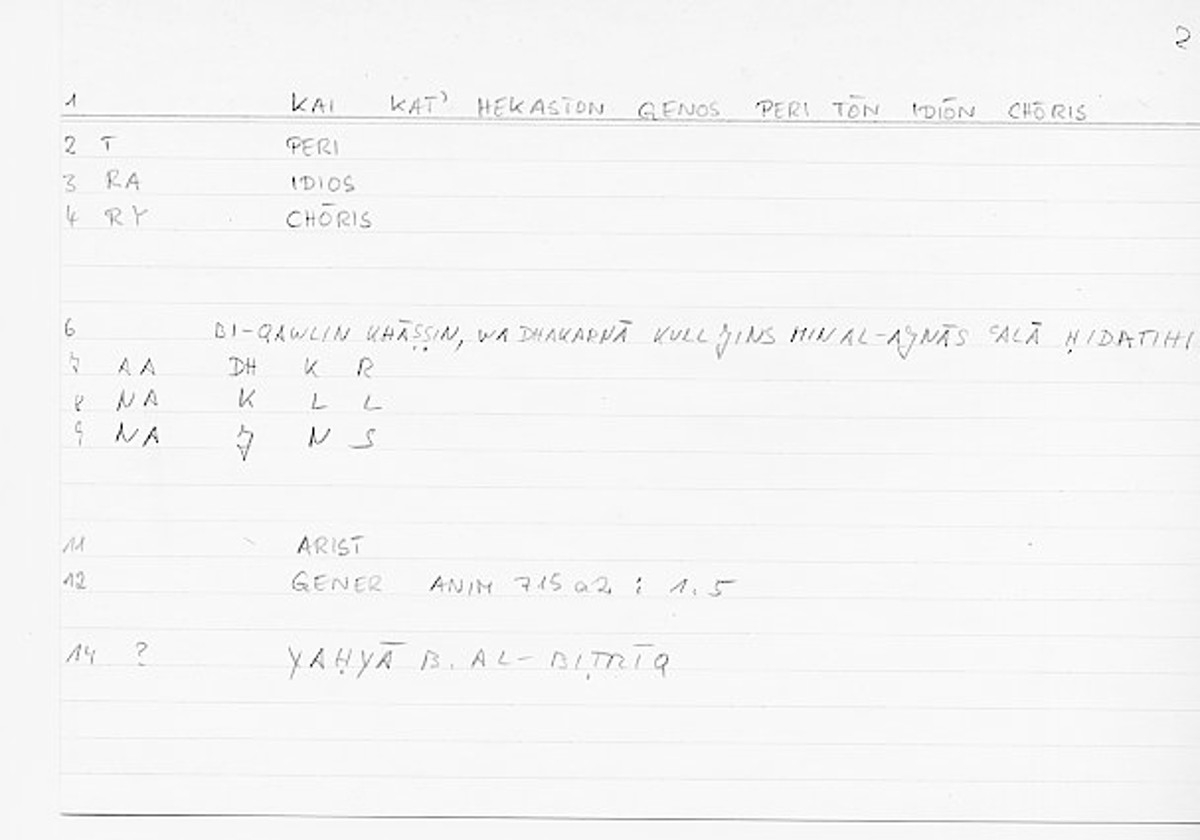 2
1 KAI KAT' HEKASTON GENOS PERI TŌN IDIŌN CHŌRIS
2 T PERI
3 RA IDIOS
4 RY CHŌRIS
6 BI-QAWLIN KHĀṢṢIN, WA DHAKARNĀ KULL JINS MIN AL-AJNĀS ʿALĀ ḤIDATIHI
7 AA DH K R
8 NA K L L
9 NA J N S
11 ARIST
12 GENER ANIM 715 a2 : 1.5
14 ? YAḤYĀ B. AL-BIṬRĪQ